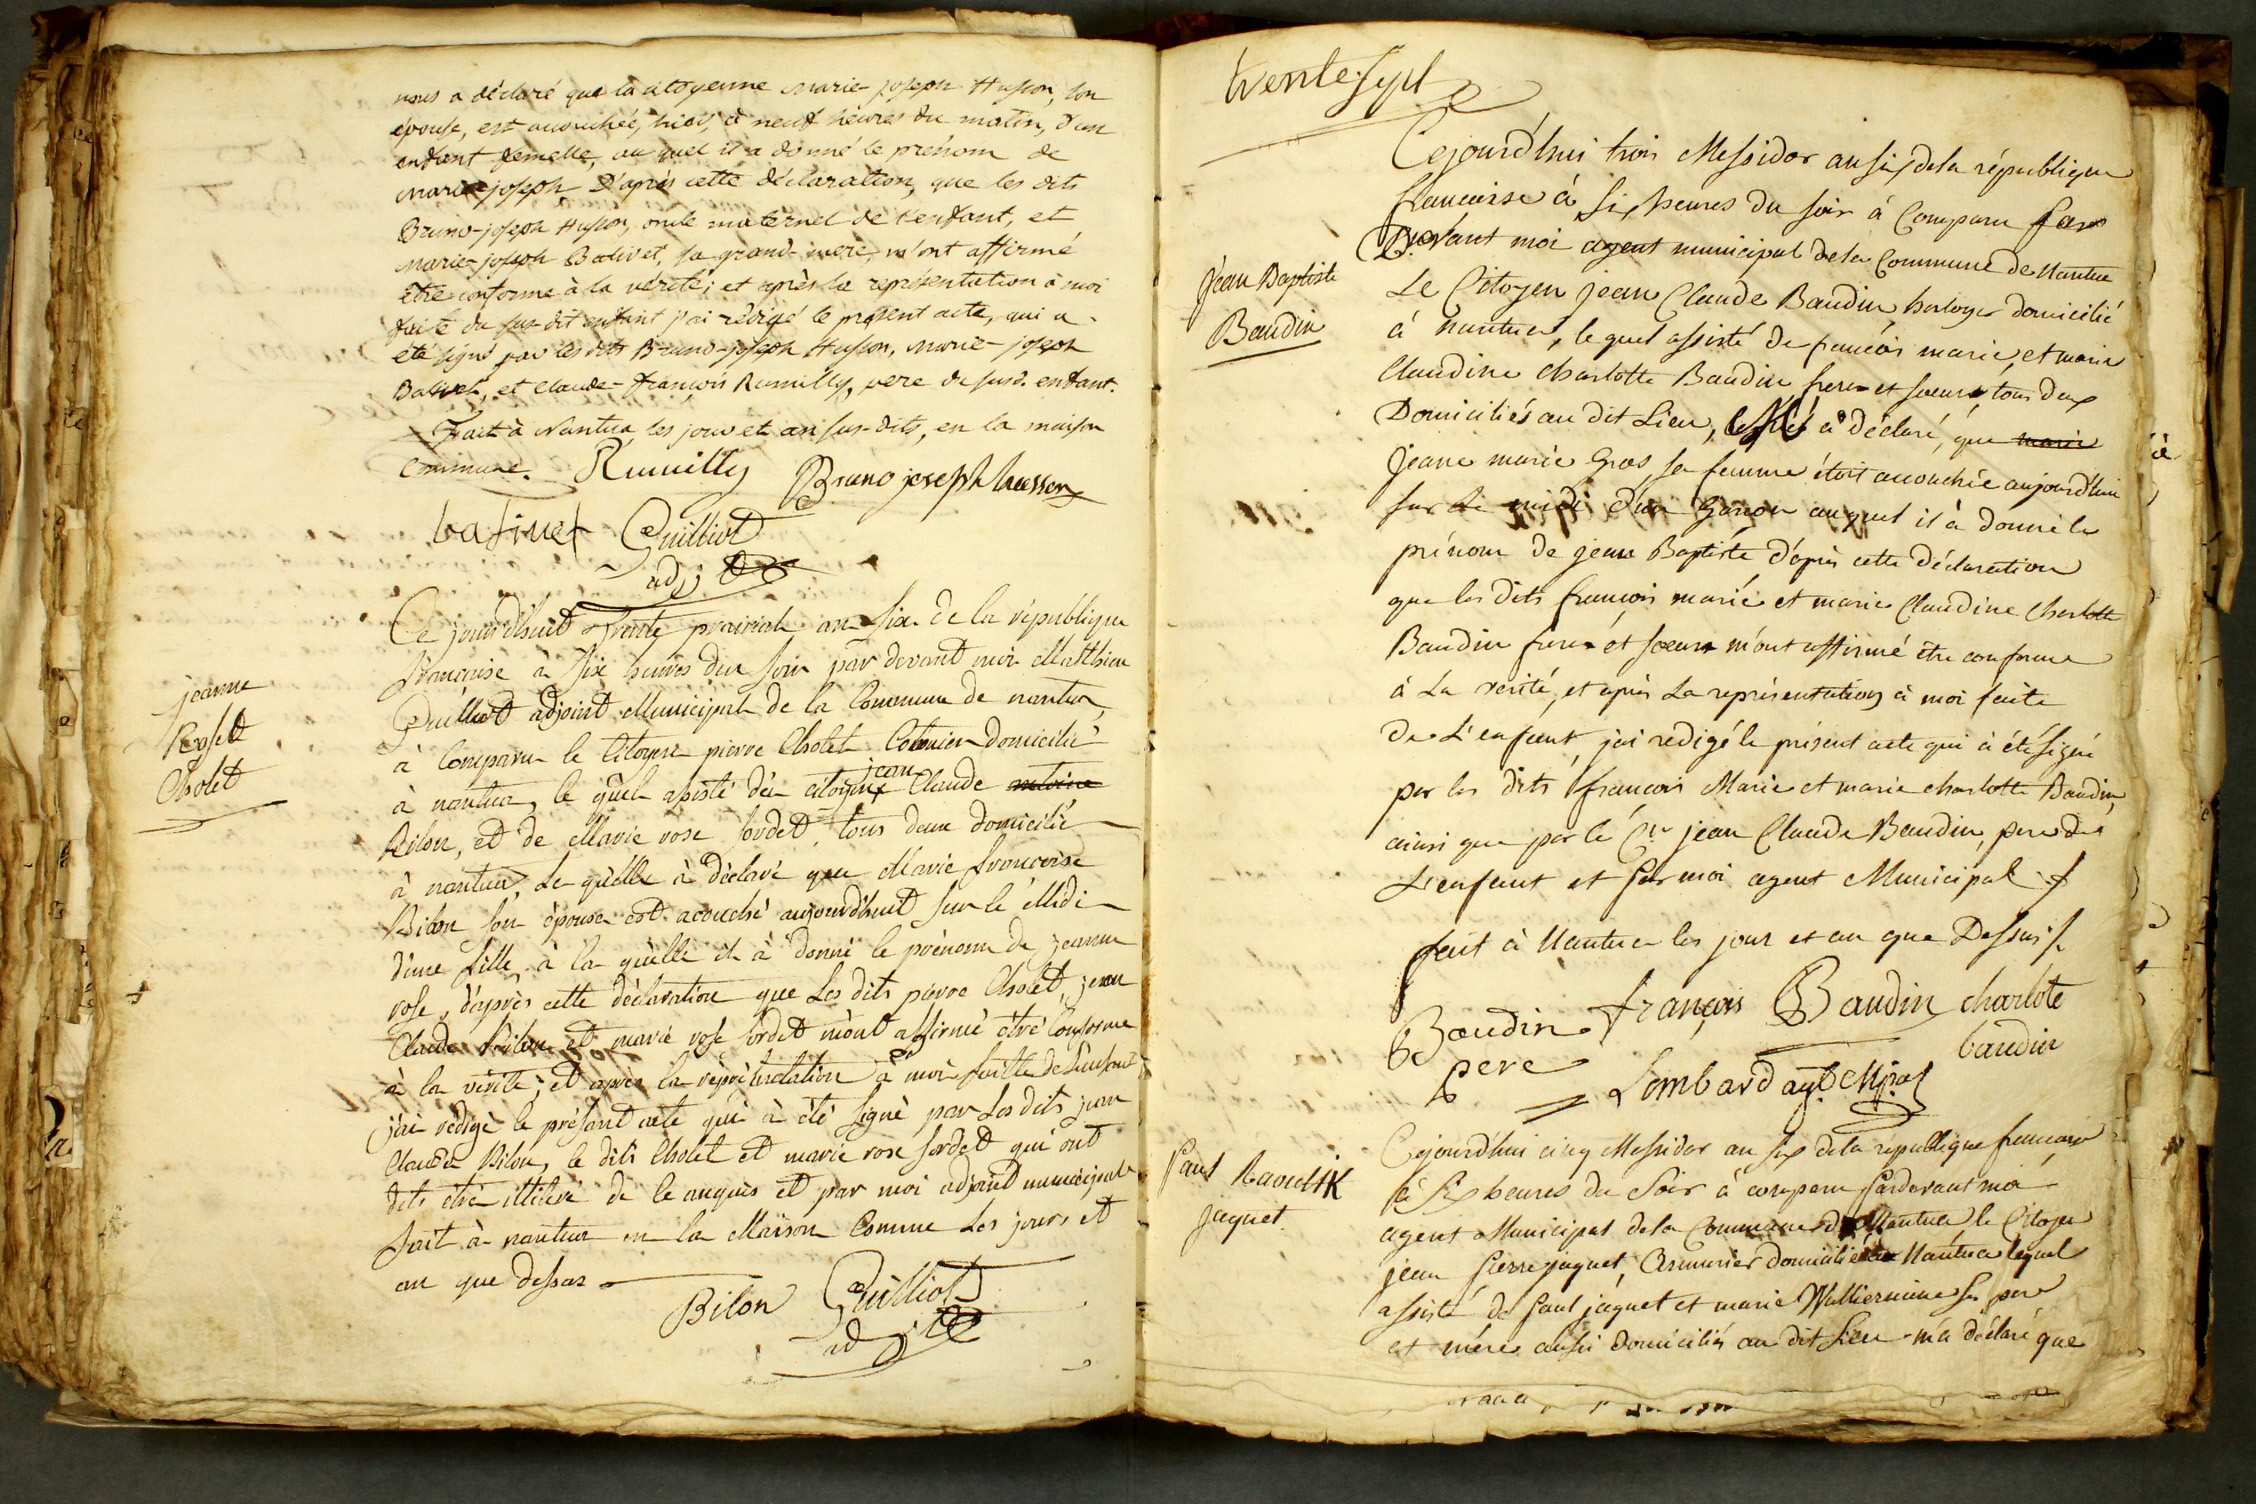 nous a déclaré que la citoyenne Marie-joseph Husson, son
épouse, est accouchée, hier, à neuf heures du matin, d'un
enfant femelle, au quel il a donné le prénom de
Marie-joseph. D'après cette déclaration, que les dits
Bruno-joseph Husson, oncle maternel de l'enfant, et
Marie-joseph Balivet, sa grand-mere, m'ont affirmé
être conforme à la vérité; et après la représentation à moi
faite du sus-dit enfant j'ai rédigé le présent acte, qui a
été signé par les dits Bruno-joseph Husson, Marie-joseph
Balivet, et Claude-françois Rumilly, pere du susd. enfant.
Fait à Nantua les jour et an sus-dits, en la maison
commune. Rumilly Bruno joseph husson
balivet Guilliot
adj
jeanne
Rose
Cholet
Ce jourd'huit trente prairial an six de la république
française à six heures du soir par devant moi Matthieu
Guilliot adjoint Municipal de la Commune de nantua,
à Comparu le Citoyen pierre Cholet domicilié
à nantua, le quel assisté du citoyen jean Claude antoine
Bilon, et de Marie rose sordet, tous deux domicilié
à nantua, Le quelle à déclaré que Marie francoise
Bilon son épouse est acouché aujourd'huit sur le Midi
d'une fille, à la quelle il à donné le prénom de jeanne
rose, d'après cette déclaration que Les dits pierre Cholet, jean
Claude Bilon et marie rose sordet m'ont affirmé être Conforme
à la vérité; et après la représentation à moi faitte de L'enfant
j'ai rédigé le présant acte qui à été signé par Les dits jean
Claude Bilon, le dits Cholet et marie rose sordet qui ont
dits être illiteré de le anquis et par moi adjoint municipal
fait à nantua en la Maison Comune Les jours et
an que dessus
Bilon Guilliot
adj
trente sept
Jean Baptiste
Baudin
Cejourd'hui trois Messidor an six de la république
francaise à six heures du soir à Comparu par
Devant moi agent municipal de la Commune de Nantua
Le Citoyen jean Claude Baudin, horloger domicilié
à nantua, le quel assisté de françois marie, et marie
Claudine Charlotte Baudin frere et soeur, tous deux
Domiciliés au dit Lieu, à déclaré, que marie
Jeane marie Gros, sa femme étoit accouchée aujourd'hui
sur le midi d'un Garçon auquel il à donné le
prénom de jean Baptiste d'après cette déclaration
que les dits françois marie et marie Claudine Charlotte
Baudin frere et soeur m'ont affirmé être conforme
à La verité, et après La représentation à moi faite
De L'enfant, j'ai redigé le présent acte qui à été signé
par les dits françois Marie et marie charlotte Baudin,
ainsi que par le Cen jean Claude Baudin, pere de
L'enfant et par moi agent Municipal
fait à Nantua les jour et an que Dessus
Baudin françois Baudin charlote
pere baudin
Lombard agt. Mpal
Paul Raoul
jaquet
Cejourd'hui cinq Messidor an six de la republique francaise
à six heures du Soir à comparu pardevant moi
agent Municipal de la Commune de Nantua le Citoyen
jean Pierre jaquet, Armurier domicilié à Nantua lequel
assisté de Paul jaquet et marie Wulliermine ses pere
et mére aussi domiciliés au dit Lieu m'a déclaré que